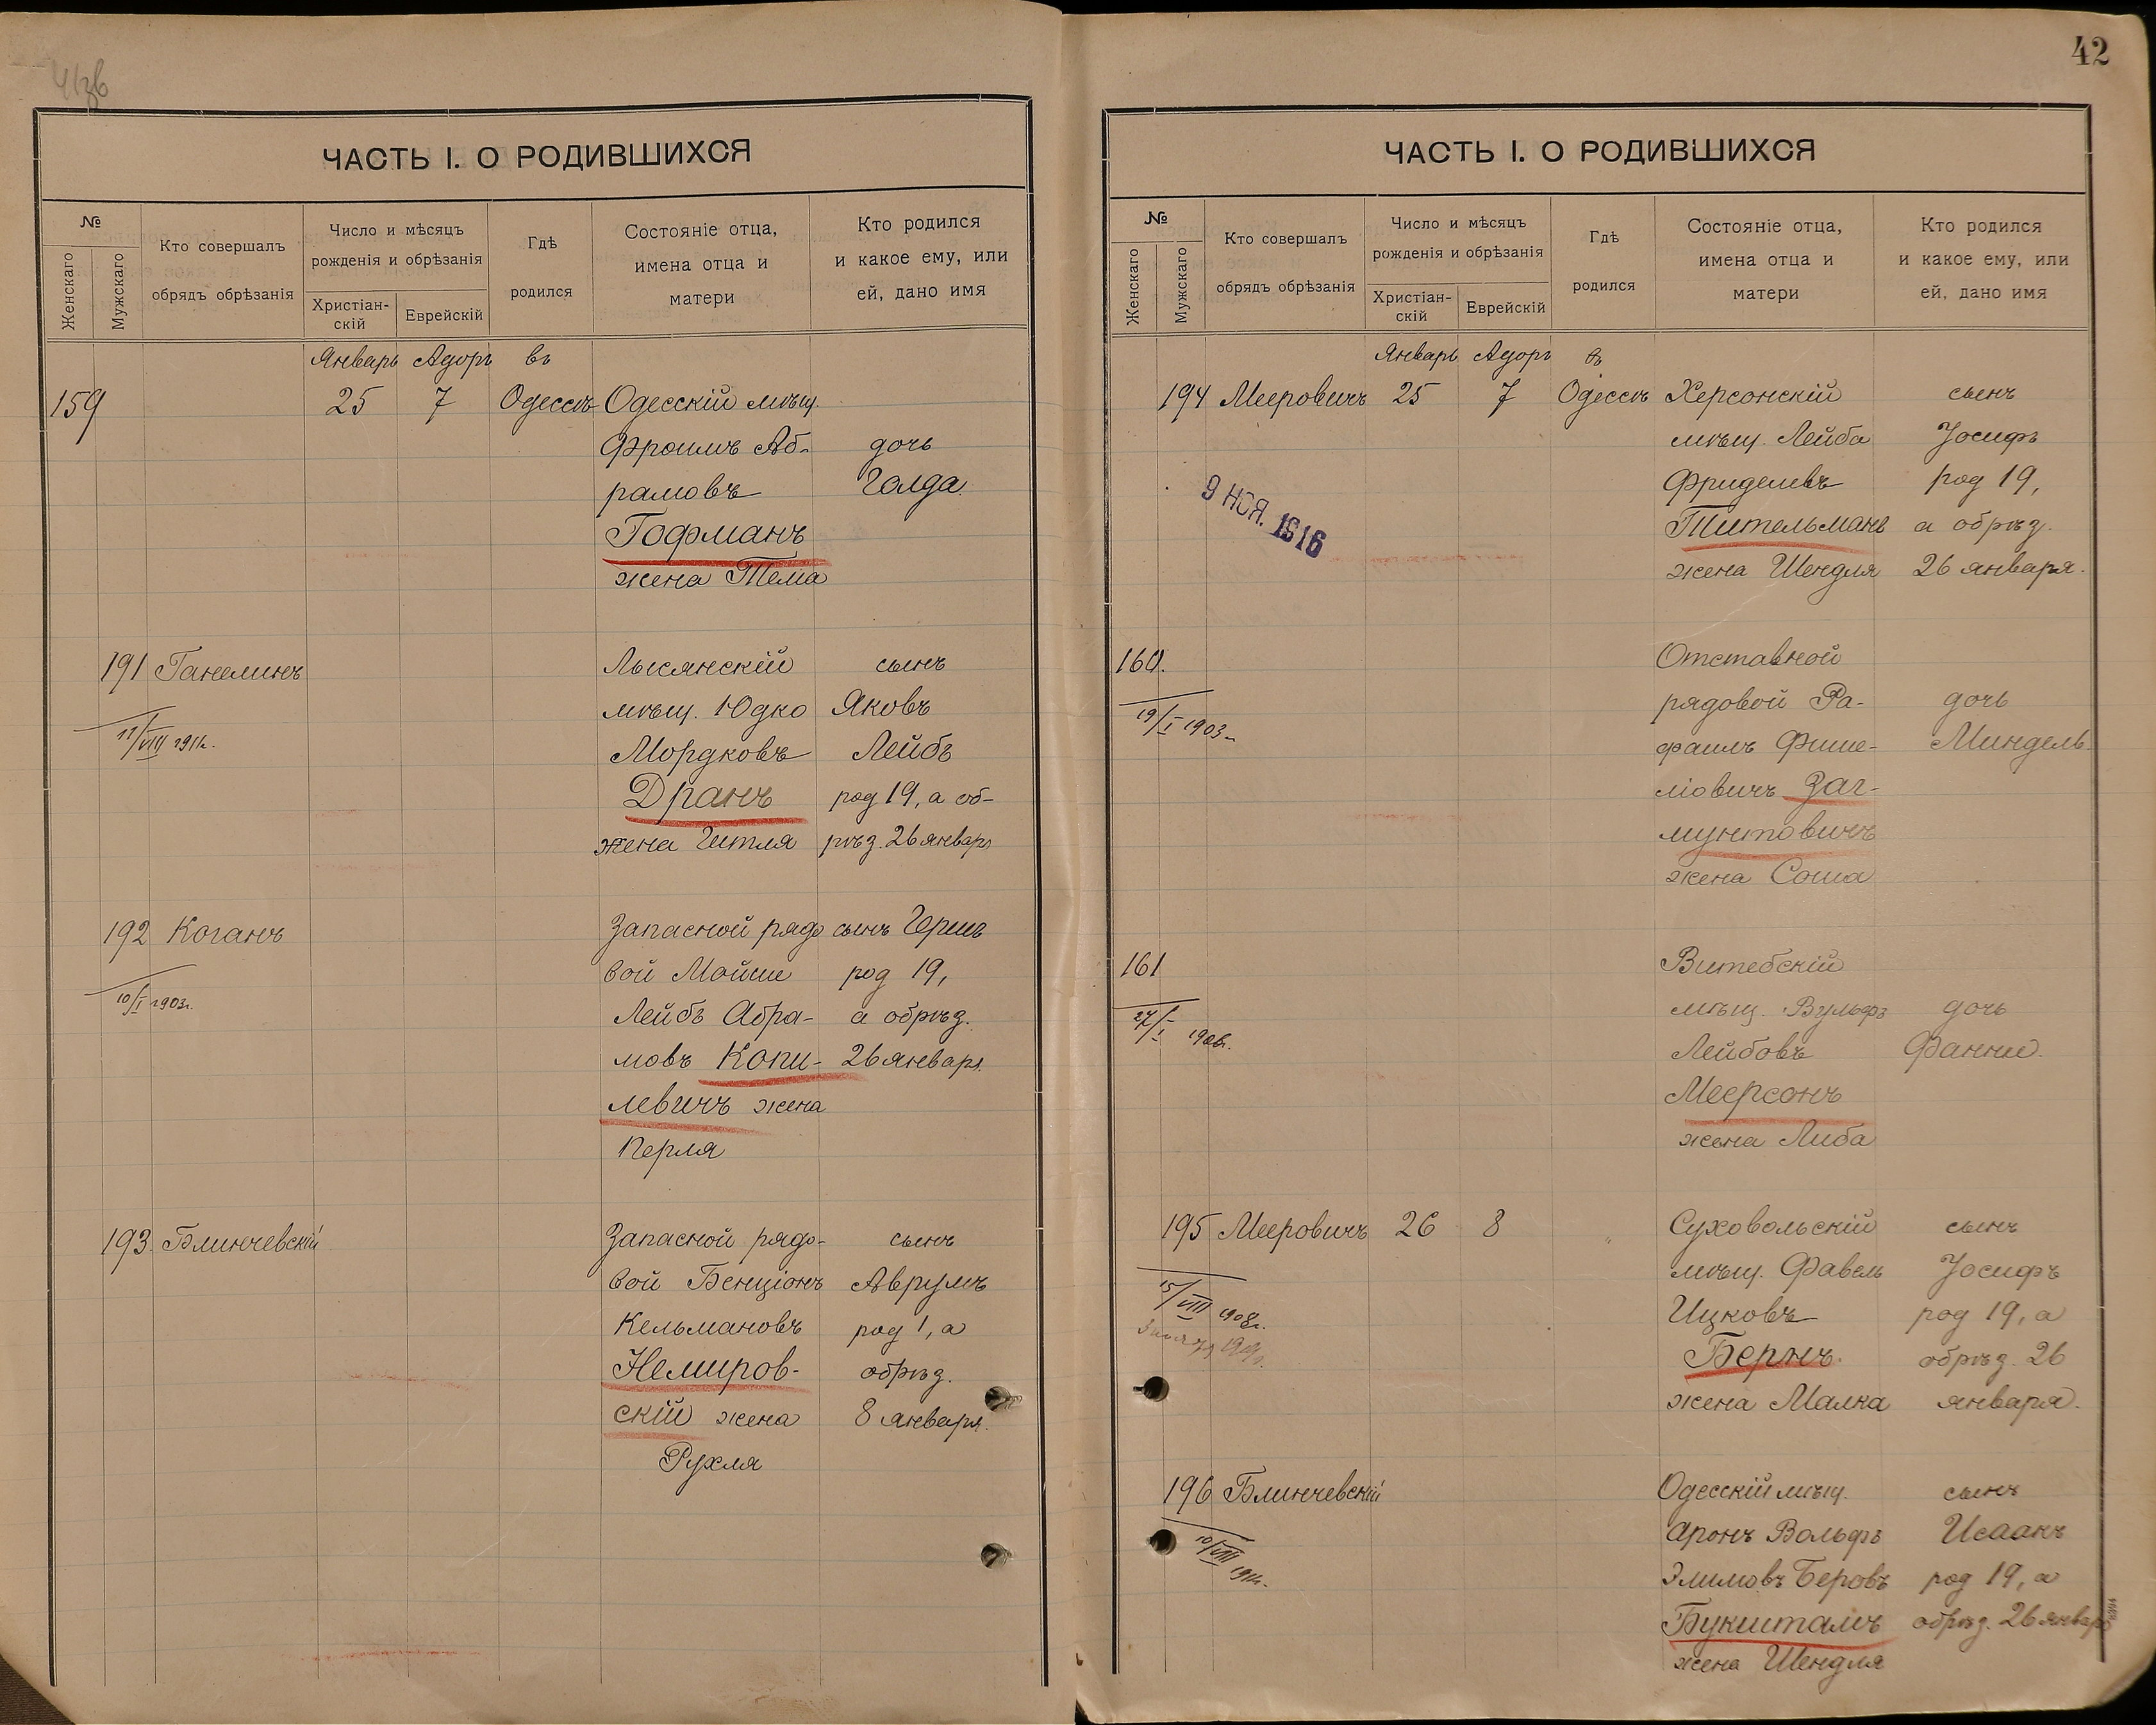 41об
ЧАСТЬ I. О РОДИВШИХСЯ
№
Женскаго
Мужскаго
Кто совершалъ
обрядъ обрѣзанія
Число и мѣсяцъ
рожденія и обрѣзанія
Христіан-
скій
Еврейскій
Гдѣ
родился
Состояніе отца,
имена отца и
матери
Кто родился
и какое ему, или
ей, дано имя
Январь Адоръ въ
159 25 7 Одессѣ Одесскій мѣщ.
Фроимъ Аб- дочь
рамовъ Голда
Гофманъ
жена Тема
191 Ганелинъ Лысянскій сынъ
мѣщ. Юдко Яковъ
11/VIII 1911г.
Мордковъ Лейбъ
Дранъ род 19, а об-
жена Гитля рѣз. 26 январ
192 Коганъ Запасной рядо сынъ Гершъ
вой Мойше род 19,
10/I 1903г.
Лейбъ Абра- а обрѣз.
мовъ Копи- 26 январ
левичъ жена
Перля
193 Блинчевскій Запасной рядо- сынъ
вой Бенціонъ Аврумъ
Кельмановъ род 1, а
Немиров- обрѣз.
скій жена 8 января
Рухля
42
ЧАСТЬ I. О РОДИВШИХСЯ
№
Женскаго
Мужскаго
Кто совершалъ
обрядъ обрѣзанія
Число и мѣсяцъ
рожденія и обрѣзанія
Христіан-
скій
Еврейскій
Гдѣ
родился
Состояніе отца,
имена отца и
матери
Кто родился
и какое ему, или
ей, дано имя
Январь Адоръ въ
194 Мееровичъ 25 7 Одессѣ Херсонскій сынъ
мѣщ. Лейба Іосифъ
Фриделевъ род 19,
9 НОЯ. 1916
Тительманъ а обрѣз.
жена Шендля 26 января.
160. Отставной
рядовой Ра- дочь
19/I 1903г
фаилъ Фише- Миндель
ліовичъ Заг-
мунтовичъ
жена Соша
161 Витебскій
мѣщ. Вульфъ дочь
27/I 1906г.
Лейбовъ Фанни.
Меерсонъ
жена Либа
195 Мееровичъ 26 8 " Суховольскій сынъ
мѣщ. Фавель Іосифъ
15/VIII 1908г.
Ицковъ род 19, а
Бернъ. обрѣз. 26
жена Малка января.
196 Блинчевскій Одесскій мѣщ. сынъ
Аронъ Вольфъ Исаакъ
10/VIII 1911г.
Элимовъ Беровъ род 19, а
Букшталъ обрѣз. 26 январ
жена Шендля